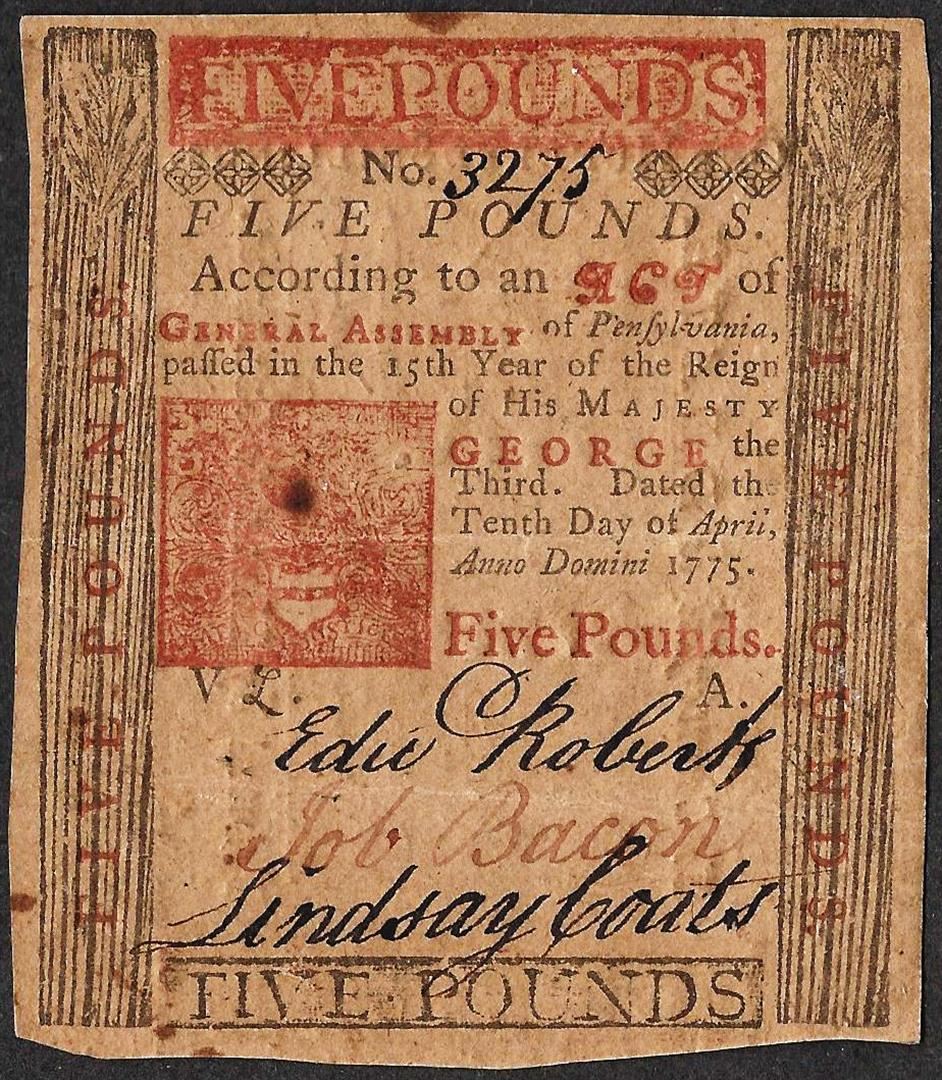 FIVE POUNDS
No. 3275
FIVE POUNDS.
According to an ACT of
GENERAL ASSEMBLY of Penſylvania,
paſſed in the 15th Year of the Reign
of His MAJESTY
GEORGE the
Third. Dated the
Tenth Day of April,
Anno Domini 1775.
Five Pounds.
V L. A.
Edw Roberts
Job Bacon
Lindsay Coats
FIVE POUNDS
FIVE POUNDS.
FIVE POUNDS.